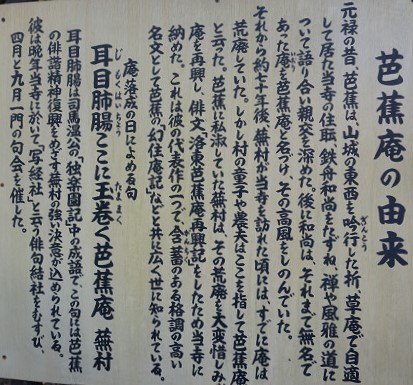 芭蕉庵の由来
元禄の昔、芭蕉は、山城の東西を吟行した折、草庵で自適
して居た当寺の住職 鉄舟和尚をたずね、禅や風雅の道に
ついて語り合い親交を深めた。後に和尚は、それまで無名で
あった庵を芭蕉庵と名づけ、その高風をしのんでいた。
それから約七十年後、蕪村が当寺を訪れた頃には、すでに庵は
荒廃していた。しかし村の童子や農夫はここを指して芭蕉庵
と云った。芭蕉に私淑していた蕪村は、その荒廃を大変惜しみ
庵を再興し、俳文「洛東芭蕉庵再興記」をしたため当寺に
納めた。これは彼の代表作の一つで、含蓄のある格調の高い
名文として芭蕉の「幻住庵記」などと共に広く世に知られている。
庵落成の日によめる句
耳目肺腸ここに玉巻く芭蕉庵 蕪村
耳目肺腸は司馬温公の「独楽園記」中の成語で、この句には芭蕉
の俳諧精神復興をめざす蕪村の強い決意が込められている。
彼は晩年当寺に於いて「写経社」と云う俳句結社をむすび、
四月と九月一門の句会を催した。